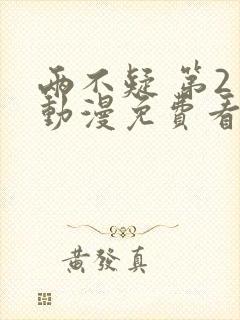 兩不疑 第2
動漫免費看
黃發真